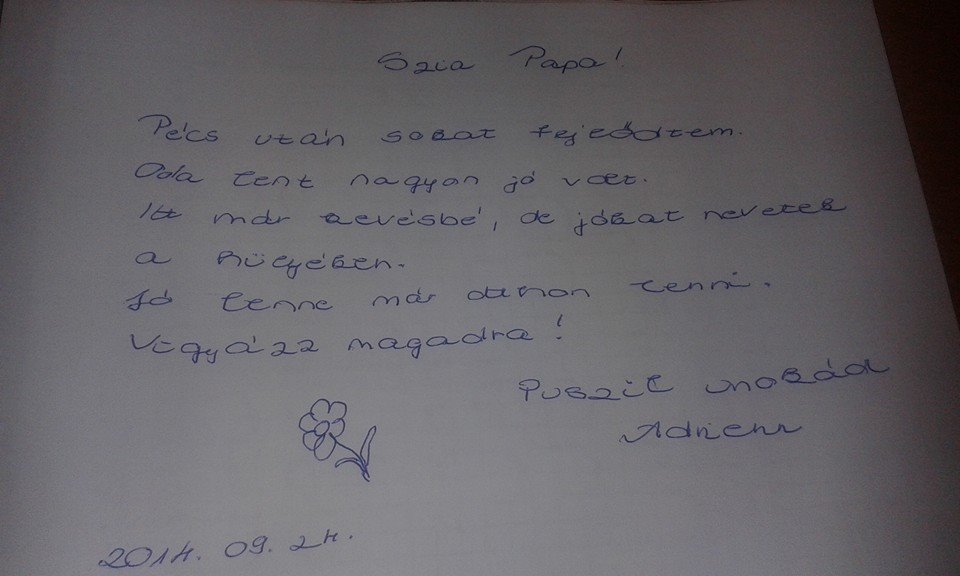 Szia Papa!
Pécs után sokat fejlődtem.
Oda lent nagyon jó volt.
Itt már kevésbé, de jókat nevetek
a hülyében.
Jó lenne már otthon lenni.
Vigyázz magadra!
Puszil unokád
Adrienn
2014. 09. 24.